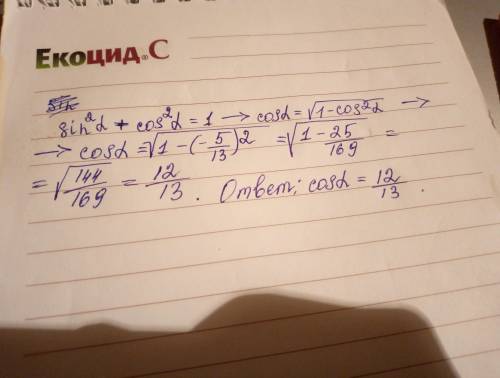 Екоцид® С
sin²α + cos²α = 1 → cosα = √1-cos²α →
→ cosα = √1-(-5/13)2 = √1-25/169 =
= √144/169 = 12/13. Ответ: cosα = 12/13.